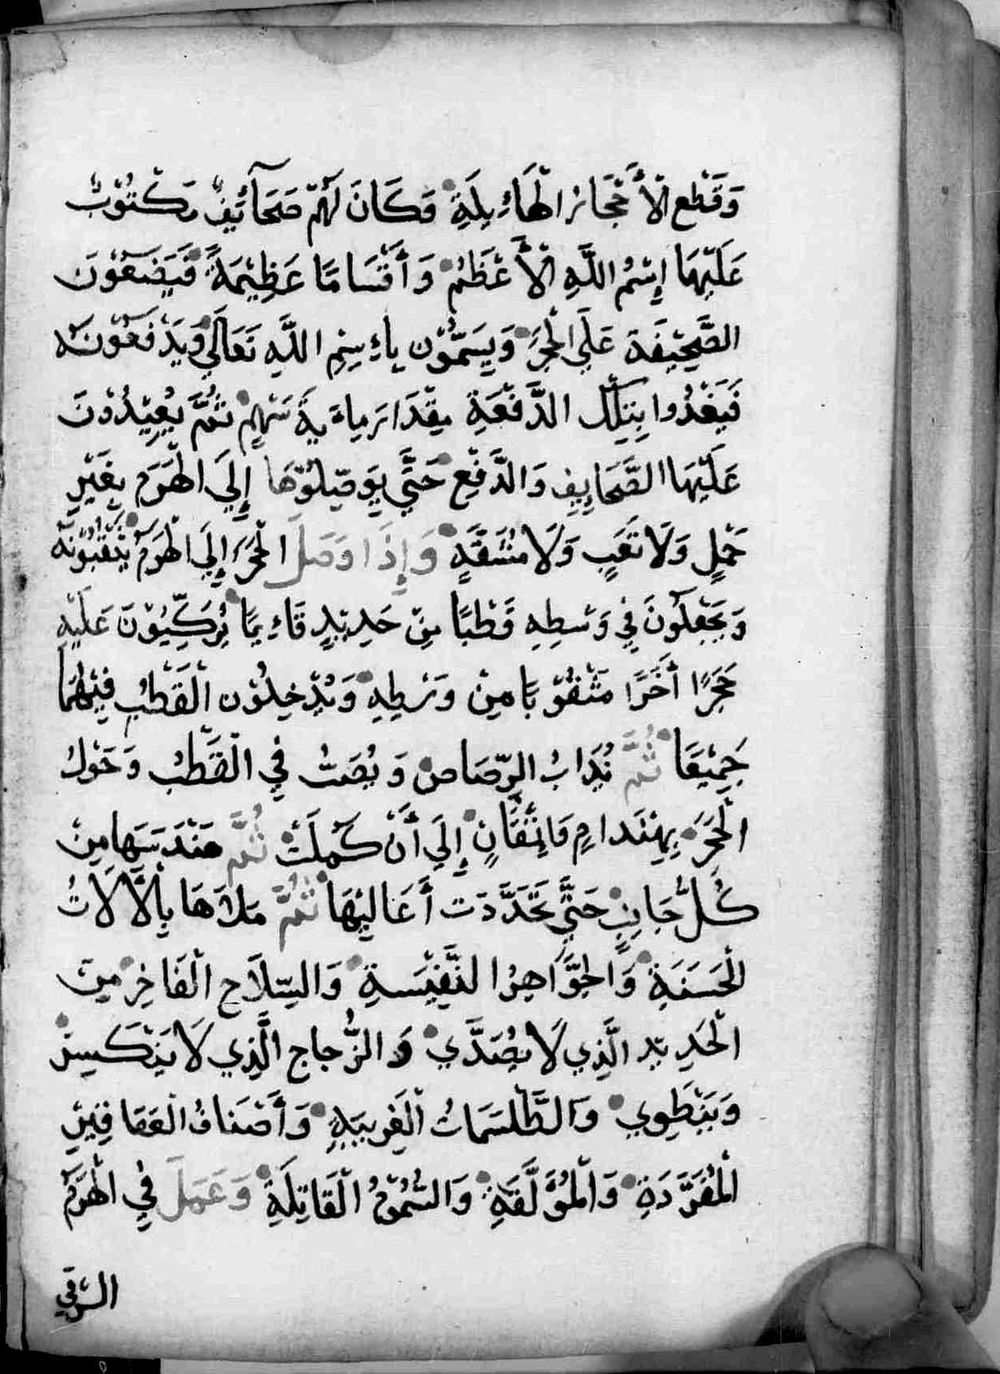 وَقَطْعِ الْأَحْجَارِ الْهَاءِيلَةِ وَكَانَ لَهُمْ صَحَآئِفٌ مَكْتُوبٌ
عَلَيْهَا إِسْمُ اللَّهِ الْأَعْظَمُ وَأَقْسَامًا عَظِيْمَةً فَيَضَعُوْنَ
الصَّحِيْفَةَ عَلَي الْحَجَرِ وَيُسَمُّوْن بِاءِسْمِ اللَّهِ تَعَالَي وَيَدْفَعُوْنَهُ
فَيَغْدُوا بِتِلْكَ الدَّفْعَةِ مِقْدَارَ مِاءَيةَ سَهْمٍ ثُمَّ يُعِيْدُوْنَ
عَلَيْهَا الصَّحَايِفِ وَالدَّفْعِ حَتَّي يُوَصِّلُوْهَا إِلَي الْهَرَمِ بِغَيْرِ
حَمْلٍ وَلَا تَعَبٍ وَلَا مَشَقَّةٍ وَإِذَا وَصَلَ الْحَجَرُ إِلَي الْهَرَمِ يَثْقُبُوْنَهُ
وَيَجْعَلُوْنَ فِي وَسْطِهِ قَطْبًا مِنْ حَدِيْدٍ قَاءِيمًا يُرَكِّبُوْنَ عَلَيْهِ
حَجَرًا أَخَرًا مَثْقُوْبًا مِنْ وَسْطِهِ وَيُدْخِلُوْن الْقَطْبَ فِيْهُمَا
جَمِيْعًا ثُمَّ يُذَابُ الرِّصَاصُ وَيُصَبُّ فِي الْقَطْبِ وَحَوْلَ
الْحَجَرِ بِهِنْدَامٍ وَاتِقَانٍ إِلَي أَنْ كَمَلَتْ ثُمَّ هَنْدَسَهَا مِنْ
كُلِّ جَانِبٍ حَتَّي تَحَدَّدَت أَعَالِيْهَا ثُمَّ مَلأَهَا بِالْآلَاتِ
الْحَسَنَةِ وَالْجَوَاهِرِ النَّفِيْسَةِ وَالسِّلَاحِ الْفَاخِرِ مِنَ
الْحَدِيْدِ الَّذِي لَا يُصَدَّي وَالزُّجاجِ الَّذِي لَا يَنْكَسِرُ
وَيَنْطَوِي وَالطَّلْسَمَاتِ الْغَرِيبَةِ وَأَصْنَافُ الْعَقَاقِيْرِ
الْمُفَرَّدَةِ وَالْمُؤَلَّفَةِ وَالسُّمُوْمِ الْقَاتِلَةِ وَعَمَلَ فِي الْهَرَمِ
الشرقي